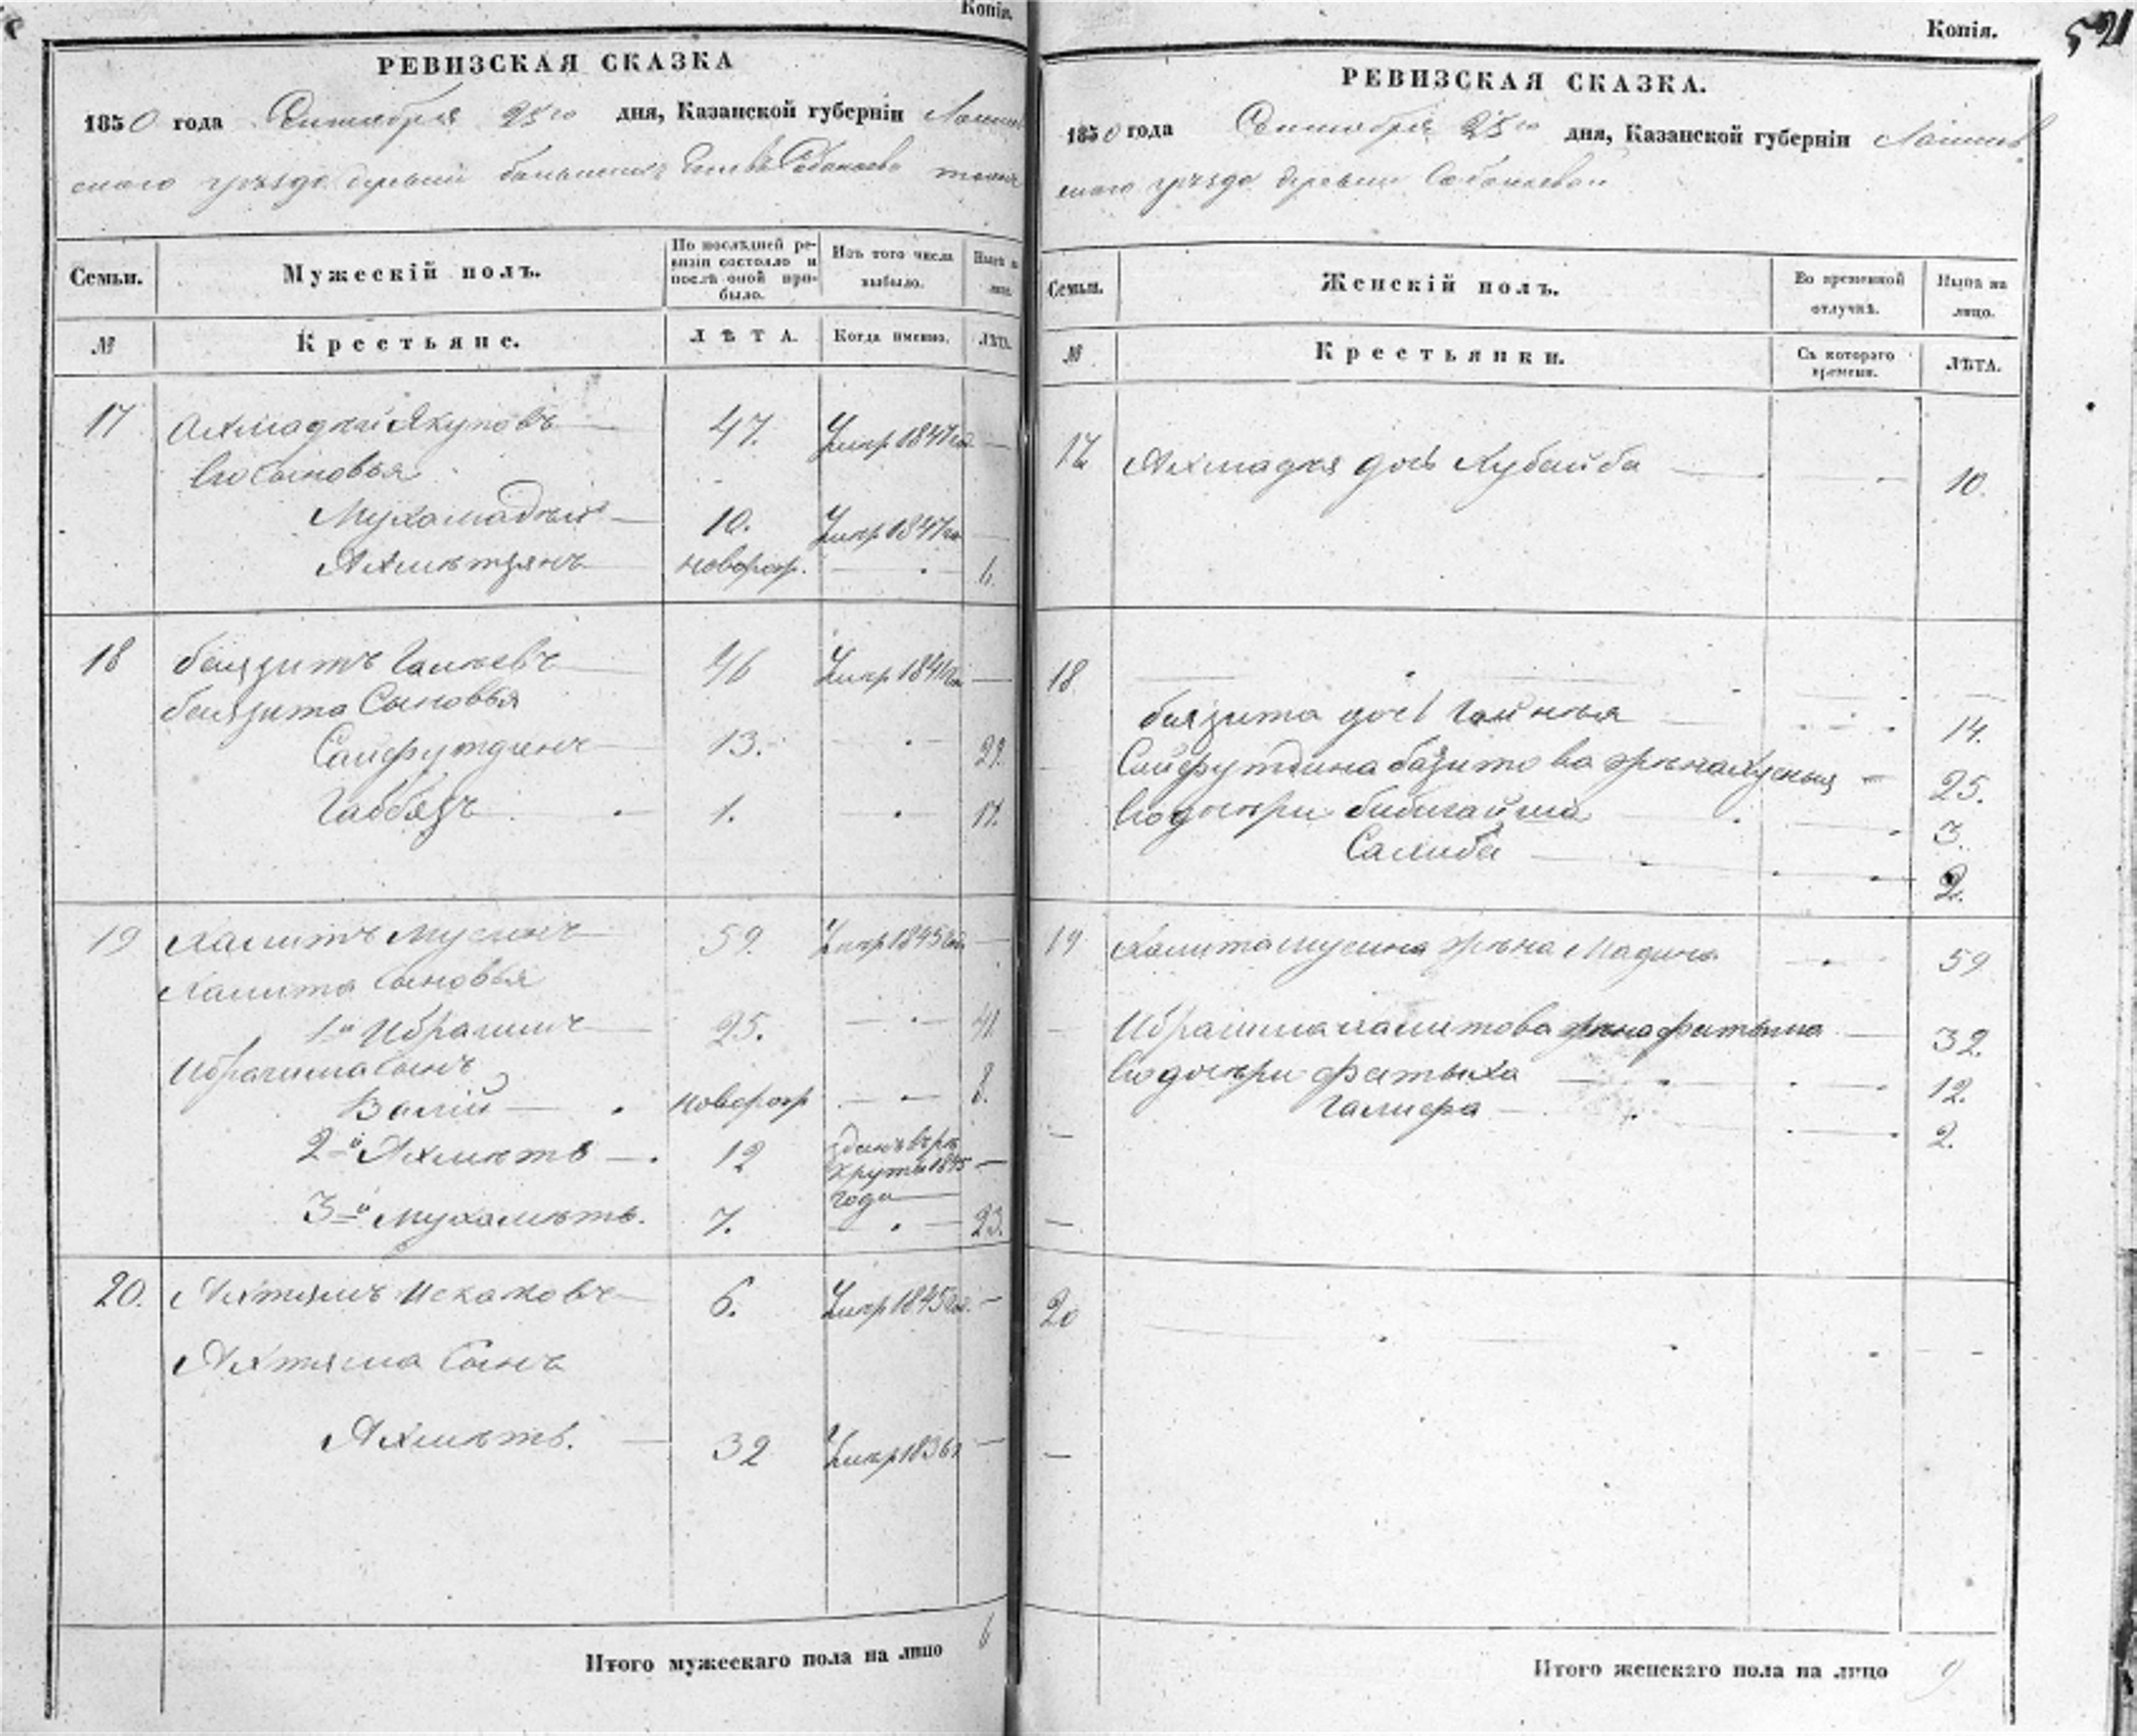 Копія.
РЕВИЗСКАЯ СКАЗКА
1850 года Сентября 25го дня, Казанской губерніи Лаишев
скаго уѣзда деревни
Семьи.
Мужескій полъ.
По послѣдней ре-
визіи состояло и
послѣ оной при-
было.
Изъ того числа
выбыло.
Нынѣ на
лицо.
№
Крестьяне.
ЛѢТА.
Когда именно.
ЛѢТА.
17 Ахмадкій Якуповъ — 47. Умер 1847 —
Его Сыновья
10. Умер 1847 —
Ахметзянъ новорож. — 6.
18 баязитъ Галеевъ — 46 Умер —
баязита Сыновья
Сайфутдинъ — 13. — 29.
Габбязъ 1. 17.
19 Халитъ Мусинъ — 59. Умер 1845 —
Халита Сыновья
1й Ибрагимъ — 25. — 41
Ибрагима Сынъ
Валій — новорож — 8.
2й Ахметъ — 12 1845 —
года
3й Мухаметъ. 7. — 23.
20. Ахтямъ Исхаковъ 6. Умер 1845 —
Ахтяма Сынъ
Ахметъ. — 32 Умер 1836 —
Итого мужескаго пола на лицо 6
Копія.
521
РЕВИЗСКАЯ СКАЗКА.
1850 года Сентября 25го дня, Казанской губерніи Лаишев
скаго уѣзда деревни
Семьи.
Женскій полъ.
Во временной
отлучкѣ.
Нынѣ на
лицо.
№
Крестьянки.
Съ котораго
времени.
ЛѢТА.
17 Ахмадкія дочь Хубайба — 10.
18
баязита дочь Гайнья — 14.
Сайфутдина баязитова жена 25.
Его дочери бибигайша 3.
Салиба — 2.
19 Халита мусина жена Мадина 59
Ибрагима халитова жена фатыма — 32.
Его дочери Фатыха — 12.
Галиефа — 2.
20
Итого женскаго пола на лицо 9